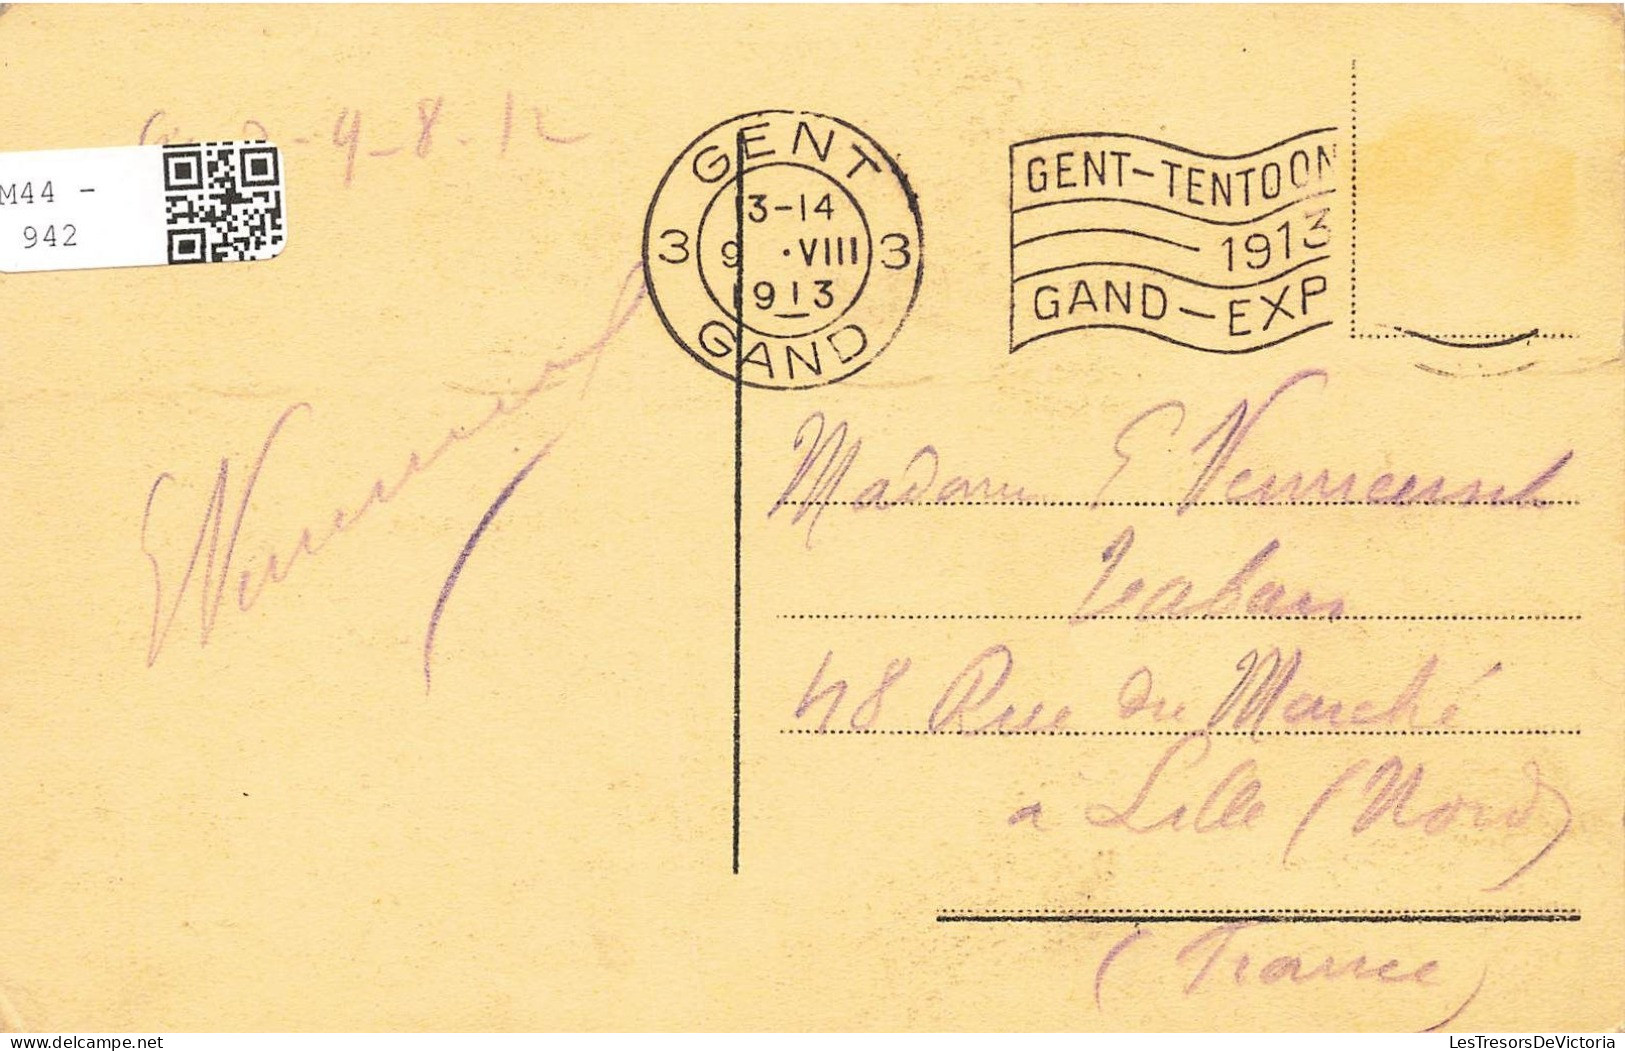 - 9 - 8 - 12
M44 -
942
GENT
3-14
3 9 ·VIII 3
1913
GAND
GENT-TENTOON
1913
GAND-EXP
E Vermeersch
Madame E Vermeersch
48 Rue du Marché
a Lille (Nord)
(France)
LesTresorsDeVictoria
delcampe.net